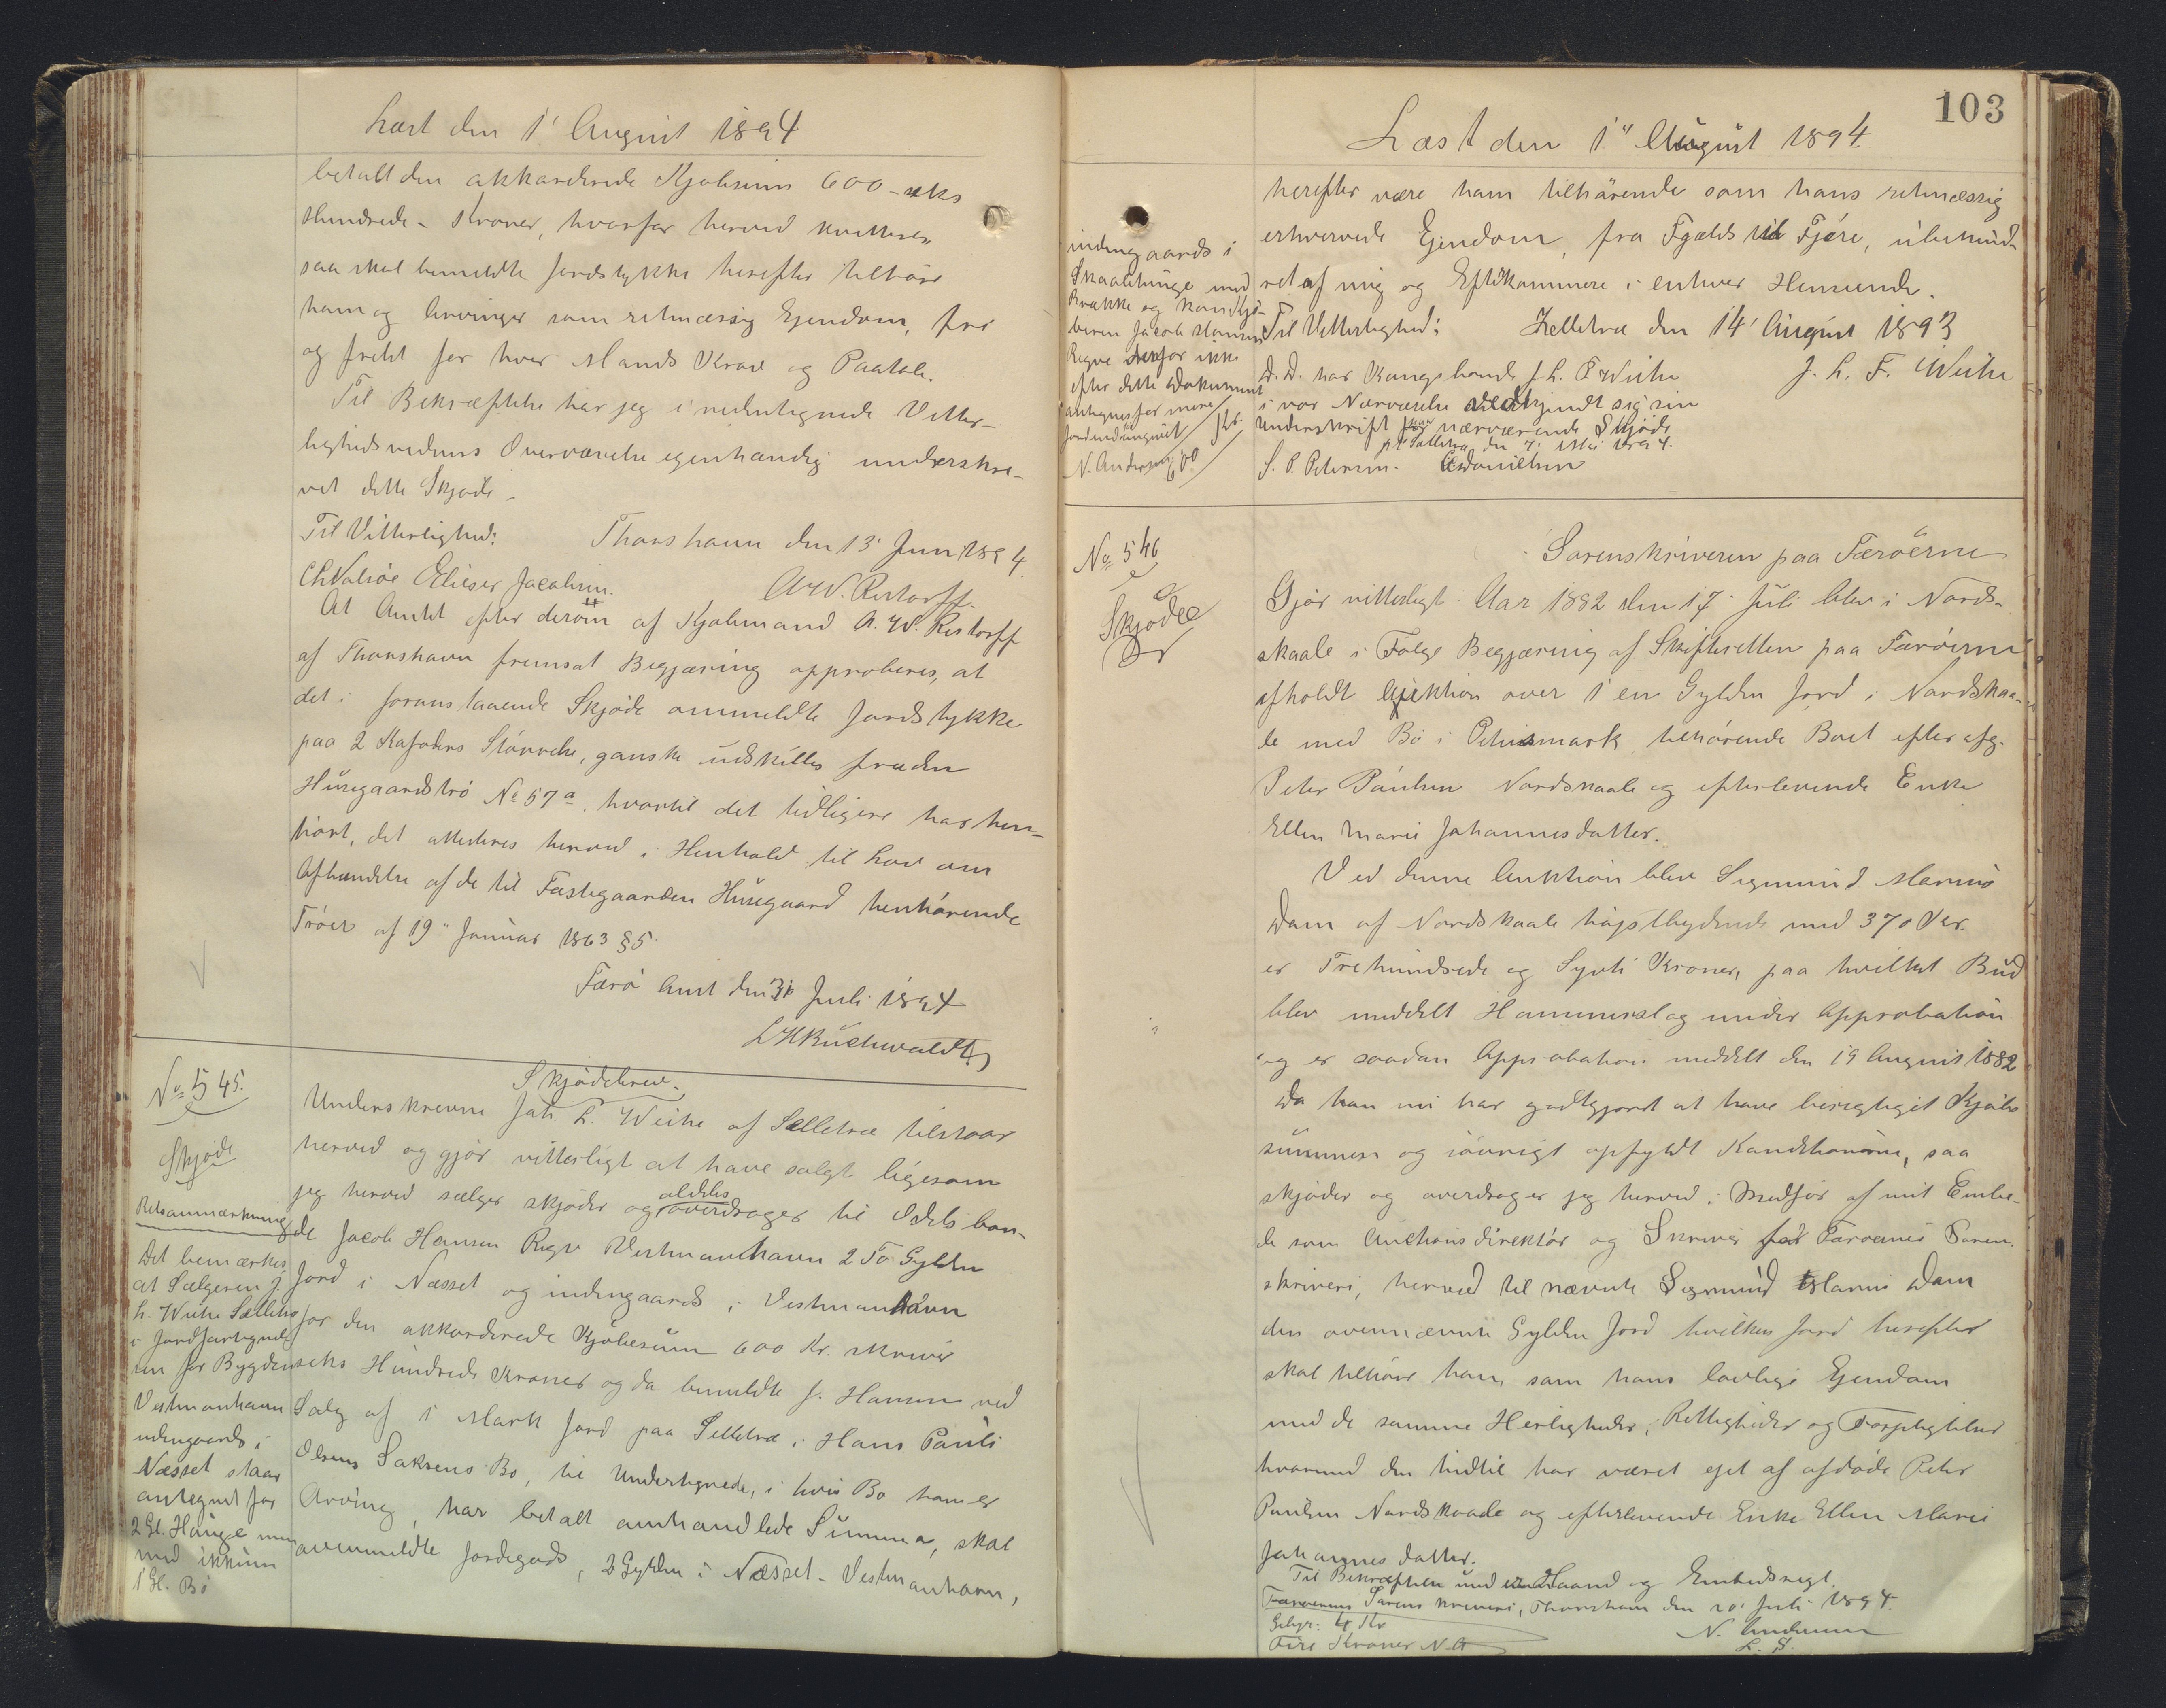 Læst den 1' August 1894
betalt den akkorderede Kjøbesum 600 - seks
Hundrede - Kroner, hvorfor herved kvitteres
saa skal bemeldte Jordstykke herefter tilhøre
ham og Arvinger som retmæssig Ejendom, fri
og frelst for hver Mands Krav og Paatale.
Til Bekræftelse har jeg i nedentegnede Vitter-
lighedsvidners Overværelse egenhændig underskre-
vet dette Skjøde -
Til Vitterlighed: Thorshavn den 13' Juni 1894.
Elieser Jacobsen. A. W. Restorff.
At Amtet efter derom af Kjøbmand A. W. Restorff
af Thorshavn fremsat Begjæring approberes, at
det i foranstaaende Skjøde ommeldte Jordstykke
paa 2 Kafolers Størrelse, ganske udskilles fra den
Husegaardstrø No 57a, hvortil det tidligere har hen-
hørt, det attesteres herved i Henhold til Lov om
Afhændelse af de til Fæstegaarden Husegaard henhørende
Trøer af 19" Januar 1863 § 5.
Færø Amt den 31 Juli 1894
LHBuchwaldt
No 545.
Skjøde
Skjødebrev.
Underskrevne Joh. L. Weihe af Selletræ tilstaar
herved og gjør vitterligt at have solgt ligesom
jeg herved sælger skjøder og aldeles overdrager til Odelsbon-
de Jacob Hansen Rygv Vestmanhavn 2 To Gylden
Jord i Næsset og indengaards i Vestmanhavn
for den akkorderede Kjøbesum 600 Kr. skriver
seks Hundrede Kroner og da bemeldte J. Hansen ved
Salg af 1 Mark Jord paa Selletræ i Hans Pauli
Olsens Saksens Bo, til Undertegnede, i hvis Bo han er
Arving, har betalt omhandlede Summa, skal
ovenmeldte Jordegods, 2 Gylden i Næsset - Vestmanhavn,
Retsanmærkning
Det bemærkes
at Sælgeren J.
L. Weihe Selletræ
i Jordfortegnel-
sen for Bygden
Vestmanhavn
udengaards i
Næsset staar
antegnet for
2 Gl. Hauge men
med ikkun
1 Gl. Bø
103
Læst den 1" August 1894.
indengaards i
Skaaletunge med
Brække og kan Kjø-
beren Jacob Hansen
Rygv derfor ikke
efter dette Dokument
antegnes for mere
Jord indengaards
N. Andersen
herefter være ham tilhørende som hans retmæssig
erhvervede Ejendom, fra Fjælds til Fjære, ubehind-
ret af mig og Efterkommere i enhver Henseende.
Til Vitterlighed: Zelletræ den 14' August 1893
J. L. F. Weihe
D. D. har Kongsbonde J. L. F. Weihe
i vor Nærværelse vedkjendt sig sin
Underskrift paa nærværende Skjøde
p. t. Selletræ den 7' Mai 1894.
S. P. Petersen. Danielsen
No 546
Skjøde
Sorenskriveren paa Færøerne
Gjør vitterligt: Aar 1882 den 17' Juli blev i Nords-
skaale i Følge Begjæring af Skifteretten paa Færøerne
afholdt Auktion over 1 en Gylden Jord i Nordskaa-
le med Bø i Petersmark tilhørende Boet efter afg.
Peter Paulsen Nordskaale og efterlevende Enke
Ellen Marie Johannesdatter.
Ved denne Auktion blev Sigmund Marius
Dam af Nordskaale højstbydende med 370 Kr.
er Trehundrede og Syvti Kroner, paa hvilket Bud
blev meddelt Hammerslag under Approbation
og er saadan Approbation meddelt den 19 August 1882
Da han nu har godtgjort at have berigtiget Kjøbe-
summen og iøvrigt opfyldt Konditionerne, saa
skjøder og overdrager jeg herved i Medfør af mit Embe-
de som Auctionsdirektør og Skriver ved Færøernes Soren-
skriveri, herved til nævnte Sigmund Marius Dam
den ovennævnte Gylden Jord hvilken Jord herefter
skal tilhøre ham som hans lovlige Ejendom
med de samme Herligheder, Rettigheder og Forpligtelser
hvormed den hidtil har været ejet af afdøde Peter
Paulsen Nordskaale og efterlevende Enke Ellen Marie
Johannesdatter.
Til Bekræftelse under min Haand og Embedssegl.
Færøernes Sorenskriveri, Thorshavn den 20' Juli 1894.
Gebyr: 4 Kr N. Andersen
Fire Kroner NA L. S.